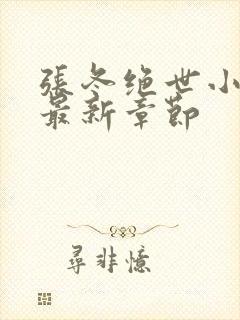 張冬绝世小
最新章節
尋非憶